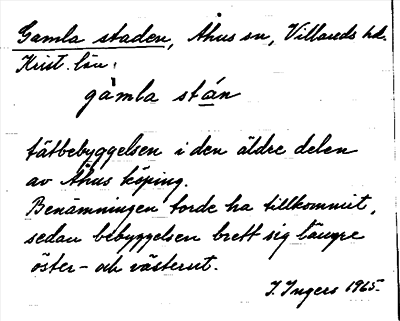 Gamla staden, Åhus sn, Villands hd.
Krist. län.
gàmla stán
tätbebyggelsen i den äldre delen
av Åhus köping.
Benämningen torde ha tillkommit,
sedan bebyggelsen brett sig längre
öster- och västerut.
I. Ingers 1965.